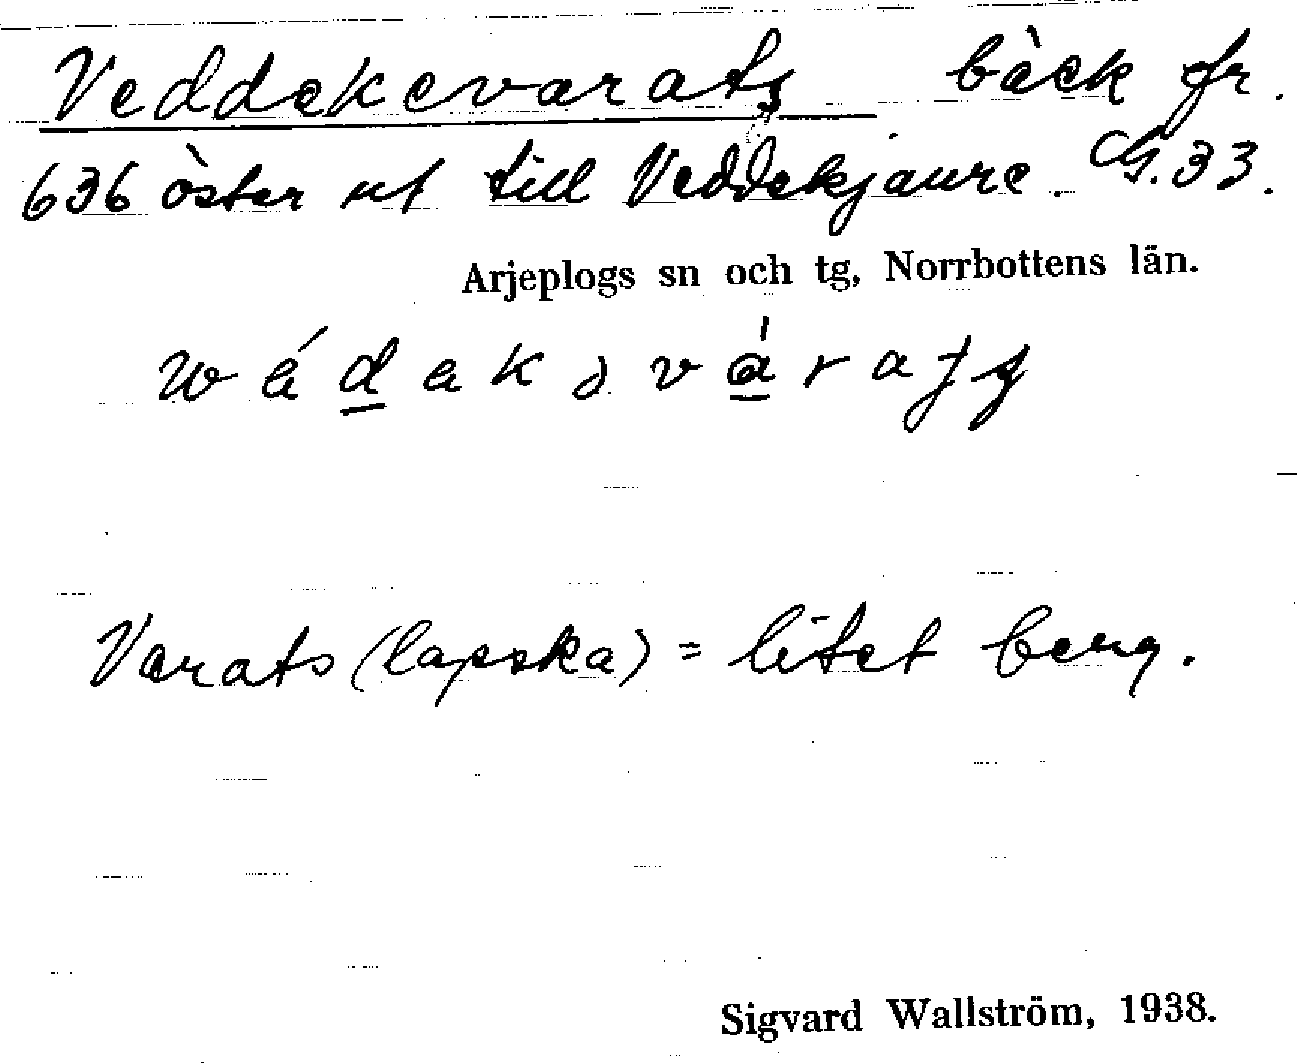 Veddekevarats bäck fr.
636 öster ut till Veddekjaure. G.33.
Arjeplogs sn och tg, Norrbottens län.
Varats (lapska) = litet berg.
Sigvard Wallström, 1938.